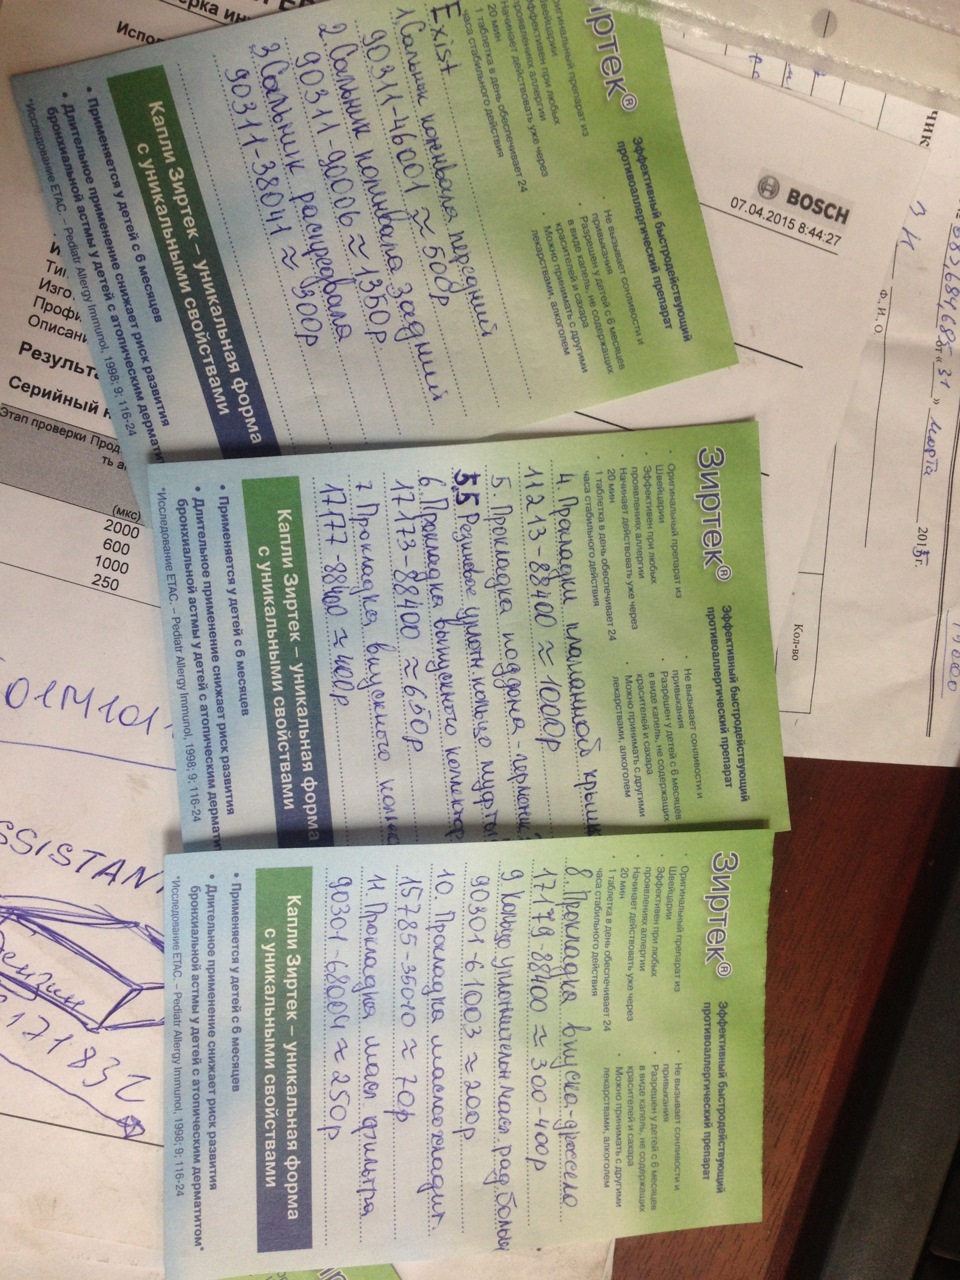 Зиртек®
Эффективный быстродействующий
противоаллергический препарат
Оригинальный препарат из
Швейцарии
Эффективен при любых
проявлениях аллергии
Начинает действовать уже через
20 мин
1 таблетка в день обеспечивает 24
часа стабильного действия
• Не вызывает сонливости и
привыкания
• Разрешен у детей с 6 месяцев
в виде капель, не содержащих
красителей и сахара
• Можно принимать с другими
лекарствами, алкоголем
Exist
1. Сальник коленвала передний
90311-46001 ≈ 500р
2 Сальник коленвала задний
90311-90006 ≈ 1350р.
3 Сальник распредвала
90311-38041 ≈ 300р
Капли Зиртек – уникальная форма
с уникальными свойствами
• Применяется у детей с 6 месяцев
• Длительное применение снижает риск развития
бронхиальной астмы у детей с атопическим дермати
*Исследование ETAC. – Pediatr Allergy Immunol, 1998; 9; 116-24
Зиртек®
Эффективный быстродействующий
противоаллергический препарат
• Оригинальный препарат из
Швейцарии
• Эффективен при любых
проявлениях аллергии
• Начинает действовать уже через
20 мин
• 1 таблетка в день обеспечивает 24
часа стабильного действия
• Не вызывает сонливости и
привыкания
• Разрешен у детей с 6 месяцев
в виде капель, не содержащих
красителей и сахара
• Можно принимать с другими
лекарствами, алкоголем
4. Прокладки клапанной крыш
11213-88400 ≈ 1000р
5. Прокладка поддона - гермет
5.5 Резиновое уплотн. кольцо муфты
6. Прокладка выпускного коллектор
17173-88400 ≈ 650р
7. Прокладка впускного коллек
17177-88400 ≈ 400р
Капли Зиртек – уникальная форма
с уникальными свойствами
• Применяется у детей с 6 месяцев
• Длительное применение снижает риск развития
бронхиальной астмы у детей с атопическим дермати
*Исследование ETAC. – Pediatr Allergy Immunol, 1998; 9; 116-24
Зиртек®
Эффективный быстродействующий
противоаллергический препарат
• Оригинальный препарат из
Швейцарии
• Эффективен при любых
проявлениях аллергии
• Начинает действовать уже через
20 мин
• 1 таблетка в день обеспечивает 24
часа стабильного действия
• Не вызывает сонливости и
привыкания
• Разрешен у детей с 6 месяцев
в виде капель, не содержащих
красителей и сахара
• Можно принимать с другими
лекарствами, алкоголем
8. Прокладка впуска-дроссело
17179-88400 ≈ 300-400р
9 Кольцо уплотнительн масл. рад больш
90301-61003 ≈ 200р
10. Прокладка маслоохладит.
15785-35010 ≈ 70р
11 Прокладка масл фильтра
90301-68004 ≈ 250р
Капли Зиртек – уникальная форма
с уникальными свойствами
• Применяется у детей с 6 месяцев
• Длительное применение снижает риск развития
бронхиальной астмы у детей с атопическим дерматитом*
*Исследование ETAC. – Pediatr Allergy Immunol, 1998; 9; 116-24
BOSCH
07.04.2015 8:44:27
от « 31 » марта 2015 г.
Ф. И. О
Кол-во
Описан
Результа
Серийный н
Этап проверки Прод
ть а
(мкс)
2000
600
1000
250
01M101
SSISTAN
бензин
171832